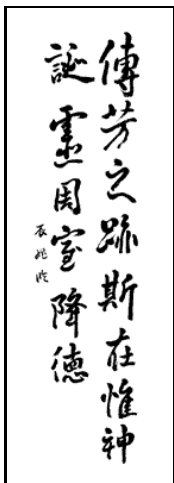 傳芳之跡斯在惟神
誕靈周室降德